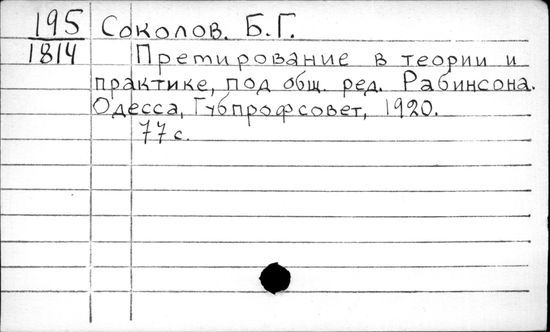 195 Соколов. Б.Г.
1814 Премирование в теории и
практике, под общ. ред. Рабинсона.
Одесса, Губпрофсовет, 1920.
77 с.